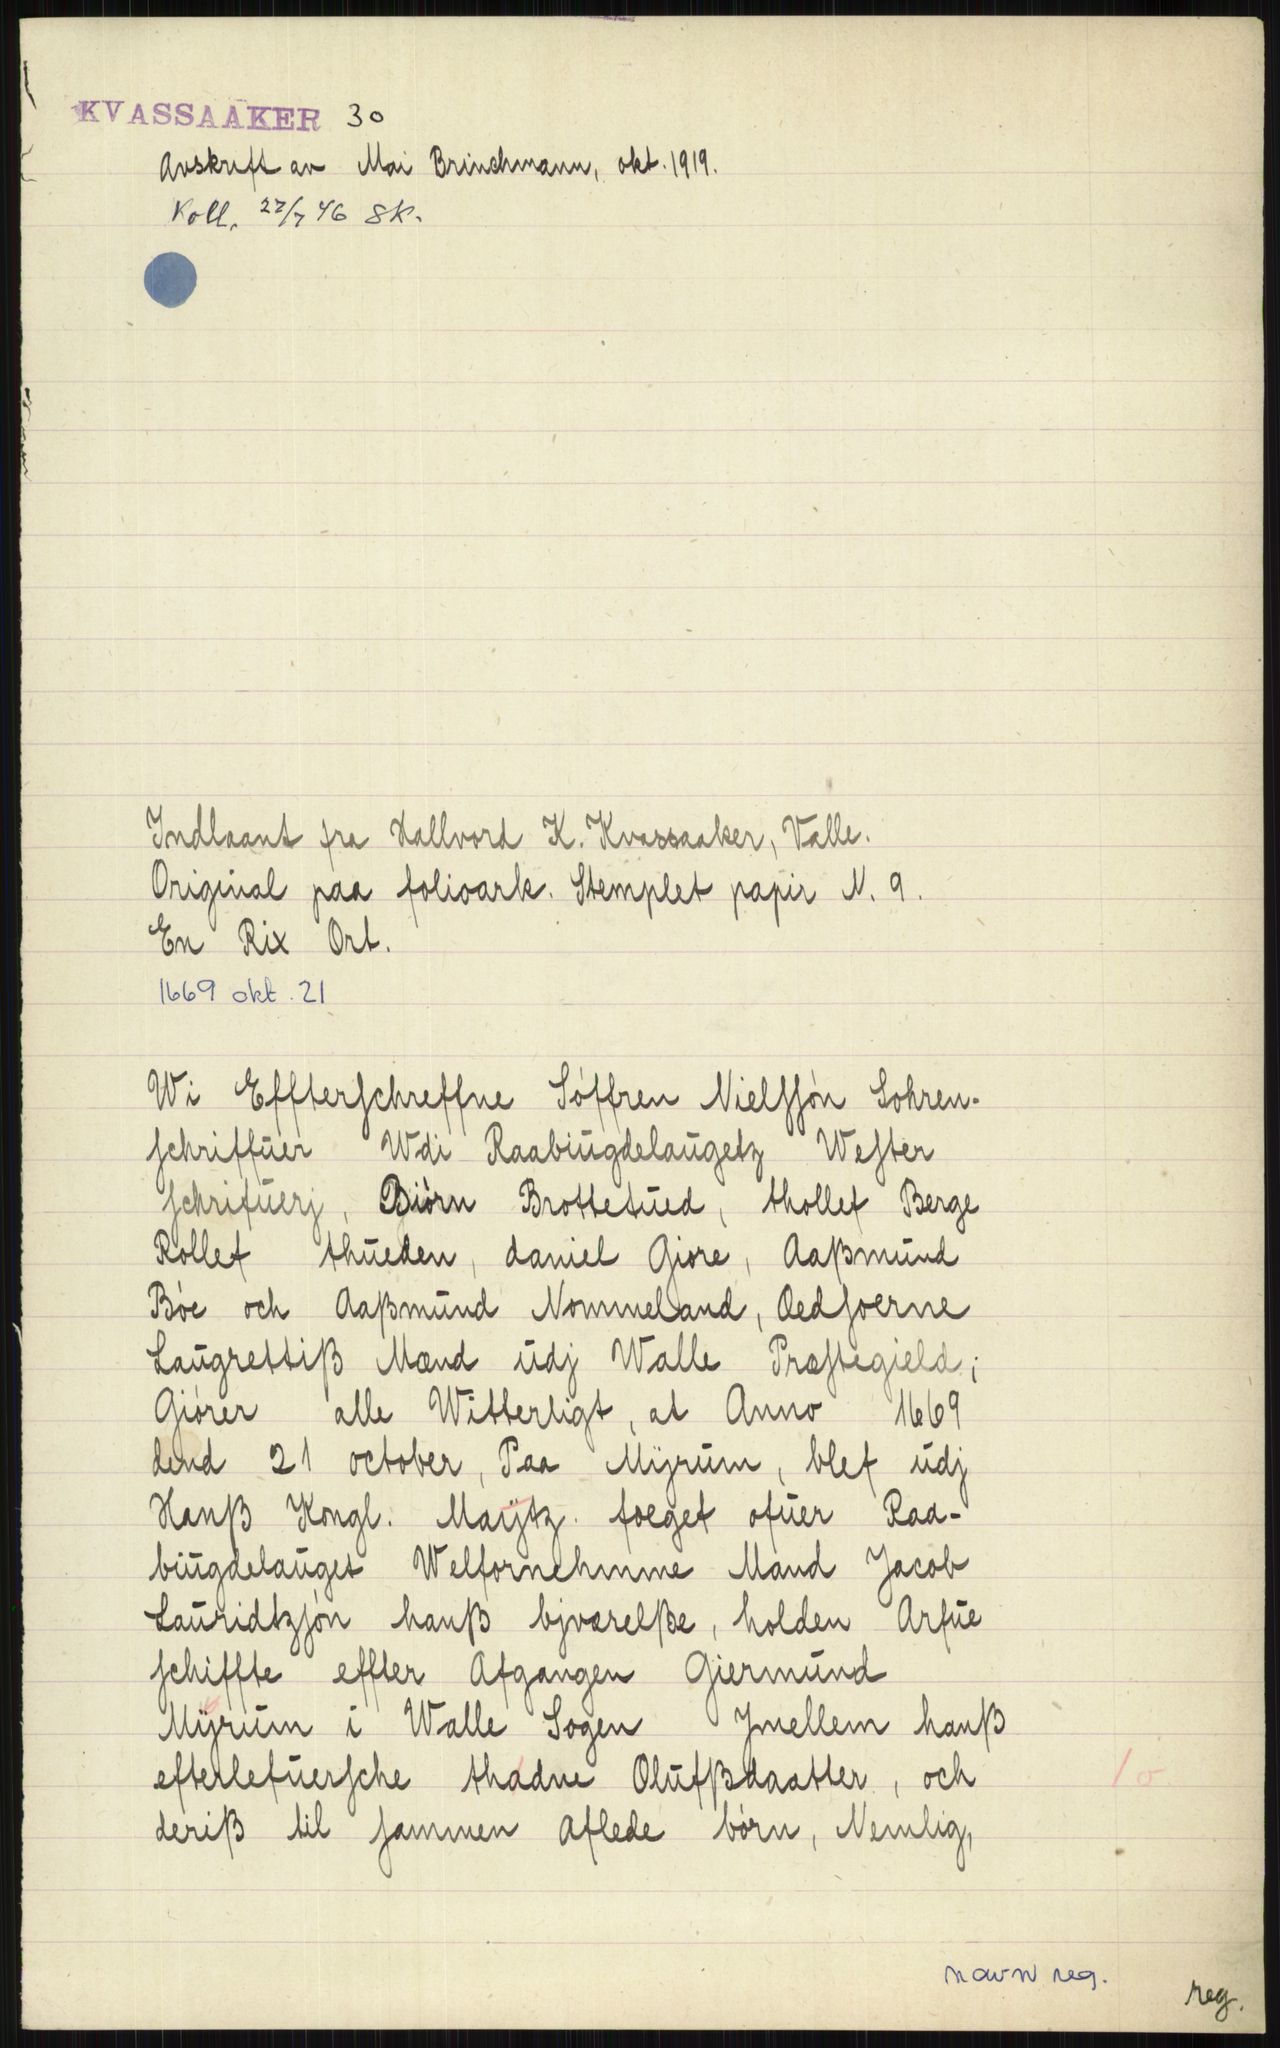 KVASSAAKER 30
Avskrift av Mai Brinchmann, okt. 1919.
Koll. 27/7 46 SK.
Indlaant fra Hallvord K. Kvassaaker, Valle.
Original paa folioark. Stemplet papir N. 9.
En Rix Ort.
1669 okt. 21
Wi Effterschreffne Söffren Nielssön Sohren-
schriffuer Wdi Raabiugdelaugetz Wester
schrifuerj, Biörn Brottetued, thollef Berge
Rollef thueden, daniel Giore, Aaßmund
Böe och Aaßmund Nommeland, Oedsoerne
Laugrettiß Mænd udj Walle Præstegield;
Giörer alle Witterligt, at Anno 1669
dend 21 october, Paa Mÿrum, blef udj
Hanß Kongl. Maÿtz. foeget ofuer Raa-
biugdelauget Welfornehmme Mand Jacob
Lauridtzsön hanß bjværelße, holden Arfue
schiffte effter Afgangen Giermund
Mÿrum i Walle Sogen Jmellem hanß
efterlefuersche thadne Olufßdaatter, och
deriß til sammen Aflede börn, Nemlig,
1 o
navn reg.
reg.